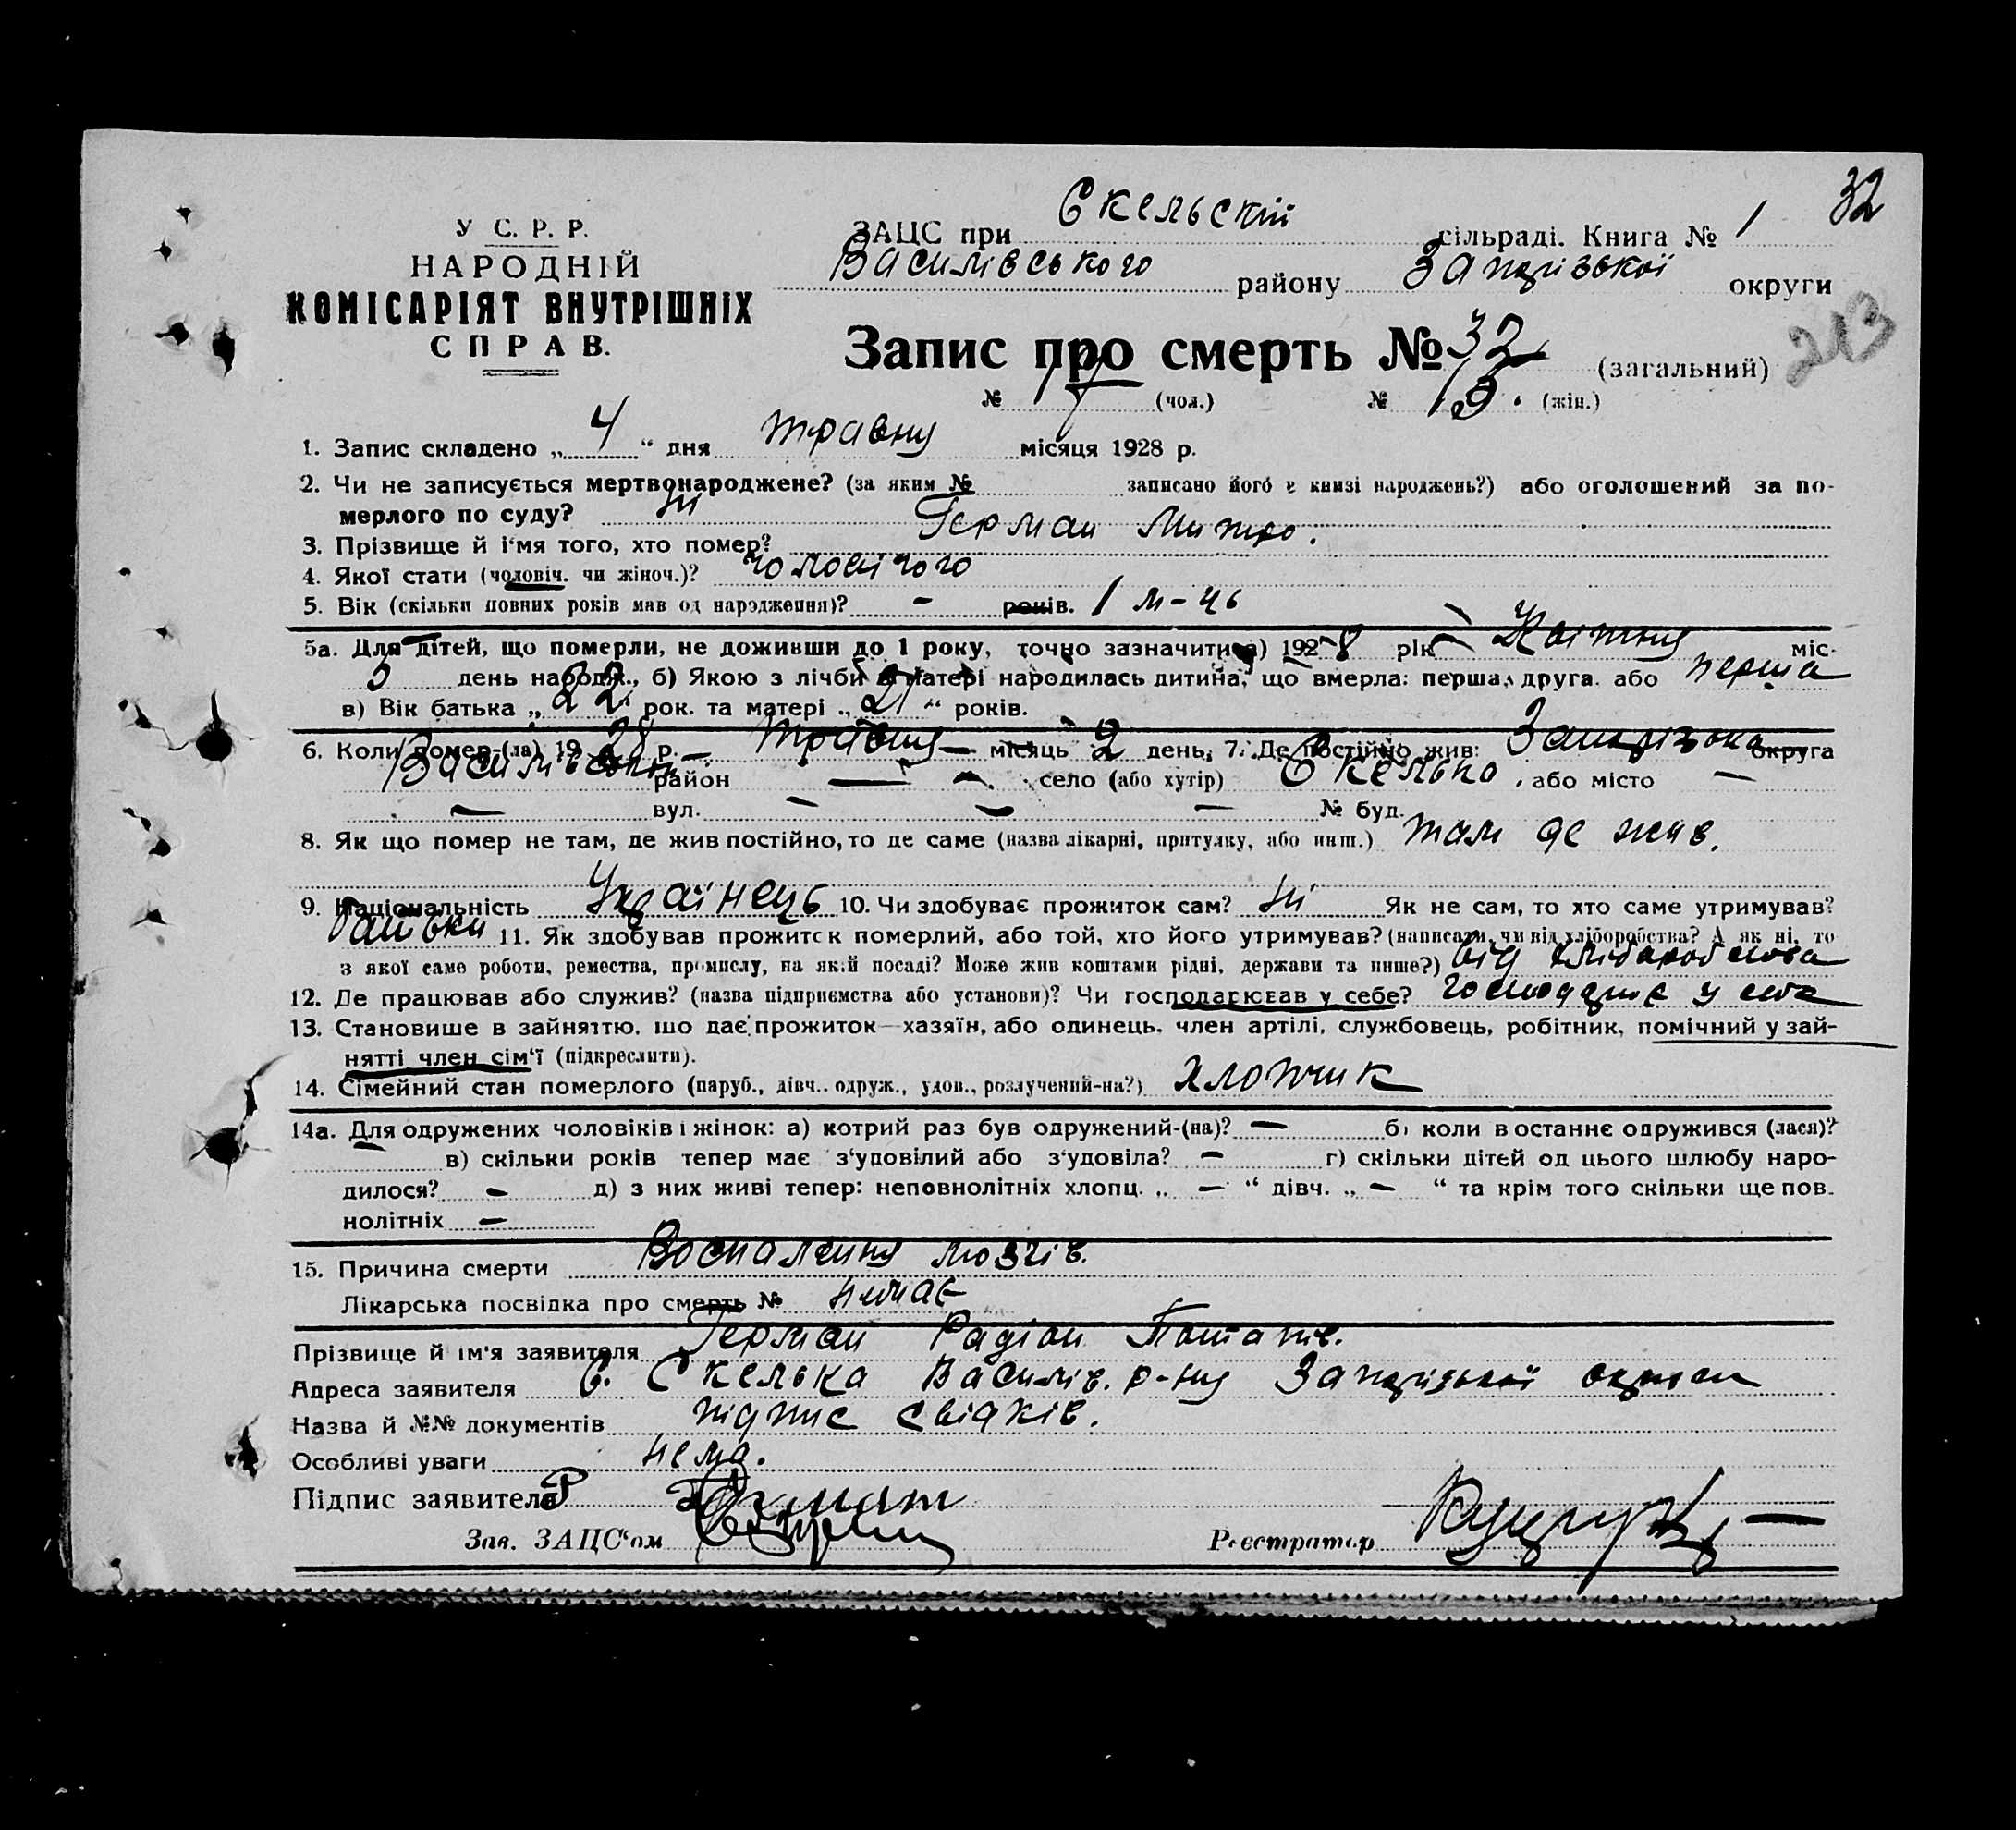 32
У С. Р. Р.
НАРОДНІЙ
КОМІСАРІЯТ ВНУТРІШНІХ
СПРАВ.
ЗАЦС при Скельскій сільраді. Книга № 1
Василівського району Запорізької округи
213
Запис про смерть № 32 (загальний)
№ 17 (чол.) № 15. (жін.)
1. Запис складено „ 4 “ дня травня місяця 1928 р.
2. Чи не записується мертвонароджене? (за яким № записано його в книзі народжень?) або оголошений за по-
мерлого по суду? ні
3. Прізвище й ім'я того, хто помер? Герман Митро.
4. Якої стати (чоловіч. чи жіноч.)? чоловічого
5. Вік (скільки повних років мав од народження)? - років. 1 м-ць
5а. Для дітей, що померли, не доживши до 1 року, точно зазначити: а) 1928 рік Квітня міс-
3 день народж., б) Якою з лічби в матері народилась дитина, що вмерла: перша, друга або перша
в) Вік батька „ 22 рок. та матері „ 21 “ років.
6. Коли помер-(ла) 19 28 р. травня місяць 2 день, 7. Де постійно жив: Запорізька округа
Василівський район — село (або хутір) Скелька, або місто —
— вул. — № буд.
8. Як що помер не там, де жив постійно, то де саме (назва лікарні, притулку, або инш.) там де жив.
9. Національність Українець 10. Чи здобуває прожиток сам? ні Як не сам, то хто саме утримував?
Батьки 11. Як здобував прожиток померлий, або той, хто його утримував? (написати, чи від хліборобства? А як ні, то
з якої саме роботи, ремества, промислу, на якій посаді? Може жив коштами рідні, держави та инше?) від хліборобства
12. Де працював або служив? (назва підприємства або установи)? Чи господарював у себе?  у себе
13. Становище в зайняттю, що дає прожиток—хазяїн, або одинець, член артілі, службовець, робітник, помічний у зай-
нятті член сім'ї (підкреслити).
14. Сімейний стан померлого (паруб., дівч.. одруж., удов., розлучений-на?) хлопчик
14а. Для одружених чоловіків і жінок: а) котрий раз був одружений-(на)? — б) коли в останнє одружився (лася)?
— в) скільки років тепер має з'удовілий або з'удовіла? — г) скільки дітей од цього шлюбу наро-
дилося? — д) з них живі тепер: неповнолітніх хлопц. „ — “ дівч. „ — “ та крім того скільки ще пов-
нолітніх —
15. Причина смерти Воспаления мозгів.
Лікарська посвідка про смерть № немає
Прізвище й ім'я заявителя Герман Радіон
Адреса заявителя С. Скелька Василів. р-ну Запорізької округи
Назва й №№ документів підпис свідків.
Особливі уваги нема.
Підпис заявителя
Зав. ЗАЦС'ом
Реєстратор